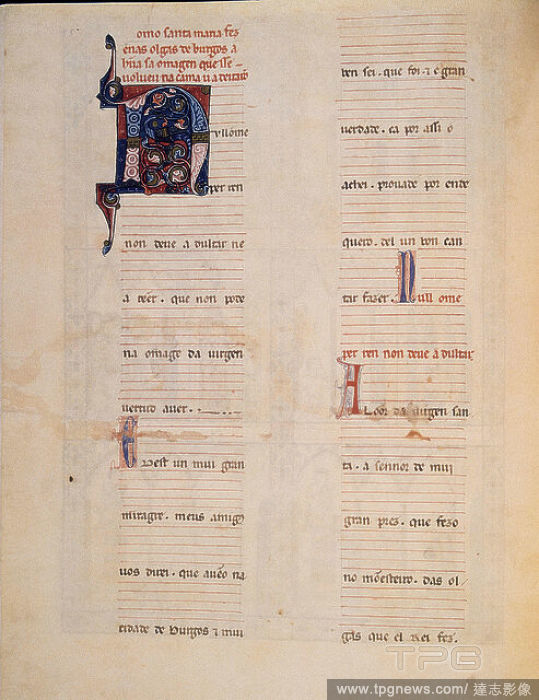 omo santa maria fez
enas olgas de burgos a
hũa sa omagen que sse
uoluen na cama u a deitarõ
Nullome
per ren
non deue a dultar ne
a tẽer. que non pode
na omagẽ da uirgen
uertud auer.
E Dest un mui gran
miragre. meus amigos
uos direi. que auẽo na
cidade de Burgos ⁊ mui
ben sei. que foi. ⁊ é gran
uerdade. ca por assi o
achei. prouade por ende
quero. del un bon can
tar fazer. Null ome
per ren non deue a dultar
A Loor da uirgen san
ta. a sennor de mui
gran prez. que fezo
no mõesteiro. das ol
gas que el Rei fez.
TPG
www.tpgnews.com / 達志影像